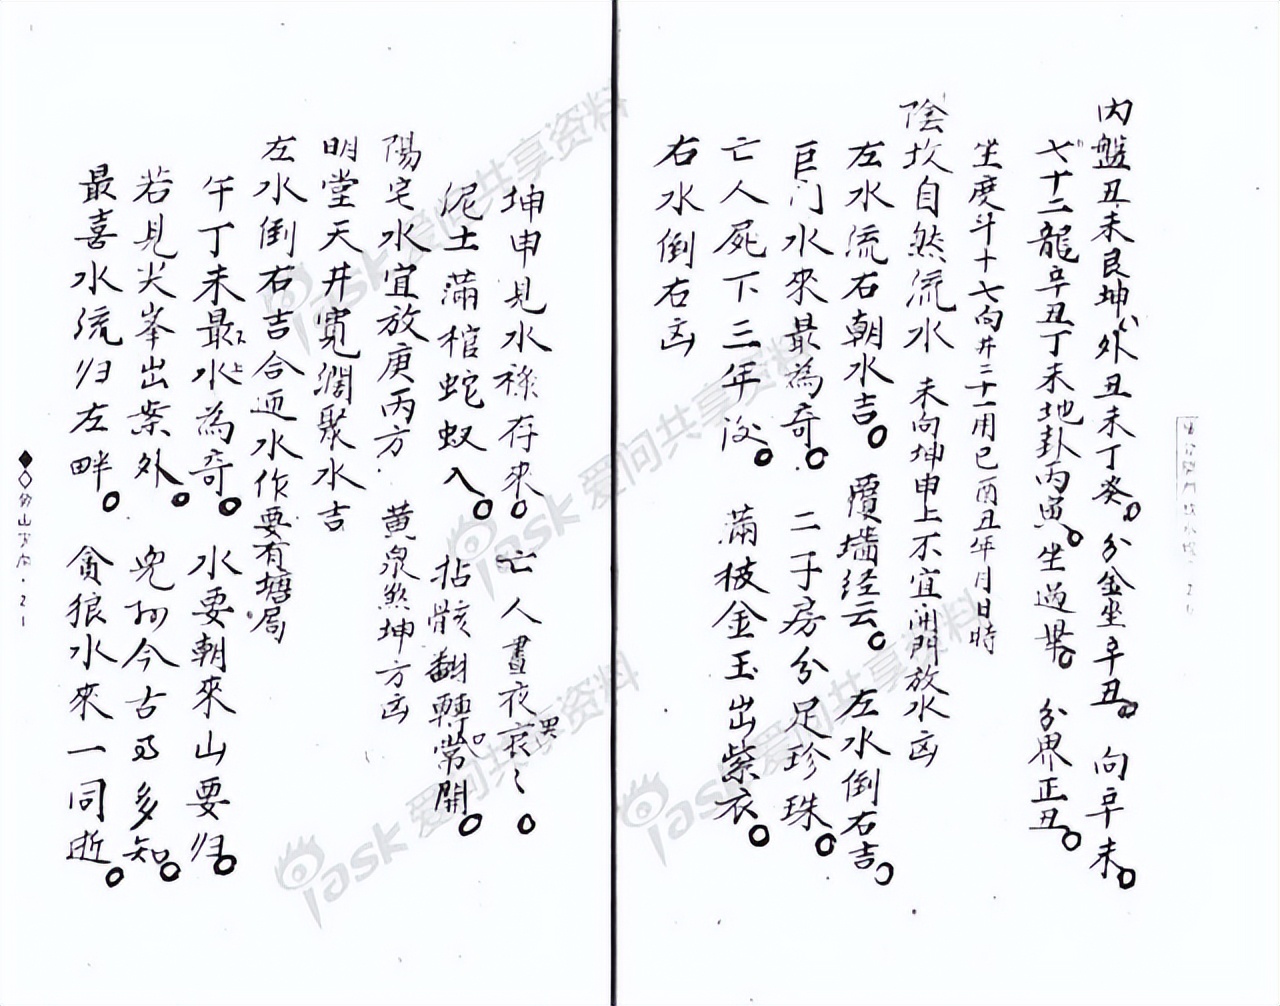 內盤丑未艮坤外丑未丁癸。分金坐辛丑。向辛未。
七十二龍辛丑丁未地卦丙寅。坐過畢。分界正丑。
坐度斗十七向井二十一用巳酉丑年月日時
陰坎自然流水 未向坤申上不宜開門放水凶
左水流右朝水吉。覆墻经云。左水倒右吉。
巨门水來最為奇。二子房分足珍珠。
亡人屍下三年后。滿被金玉出紫衣。
右水倒右凶
坤申見水祿存來。亡人晝夜哀哀。
泥土滿棺蛇蚁入。拈骸翻轉常開。
陽宅水宜放庚丙方 黄泉煞坤方凶
明堂天井寬濶聚水吉
左水倒右吉合迊水作要有塘局
午丁未最上水為奇。水要朝來山要归。
若見尖峯出案外。兒孙今古多知。
最喜水流归左畔。貪狼水來一同逝。
iask 爱问共享资料
iask 爱问共享资料
iask 爱问共享资料
iask 爱问共享资料